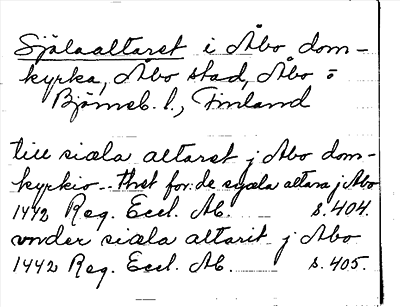 Själaaltaret i Åbo dom-
kyrka, Åbo stad, Åbo o
Björneb. l., Finland
till siæla altaret j Abo dom-
kyrkio - thet for:de syæla altara j Abo
1442 Reg. Eccl. Ab. s. 404.
vnder siæla altarit j Abo
1442 Reg. Eccl. Ab. s. 405.